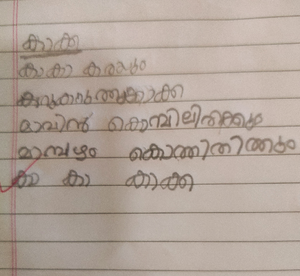 കാക്ക
കാ കാ കരയും
കറുകറുത്തുള്ളകാക്ക
മാവിൻ കൊമ്പിലിരിക്കും
മാമ്പഴം കൊത്തിതിന്നും
കാ കാ കാക്ക